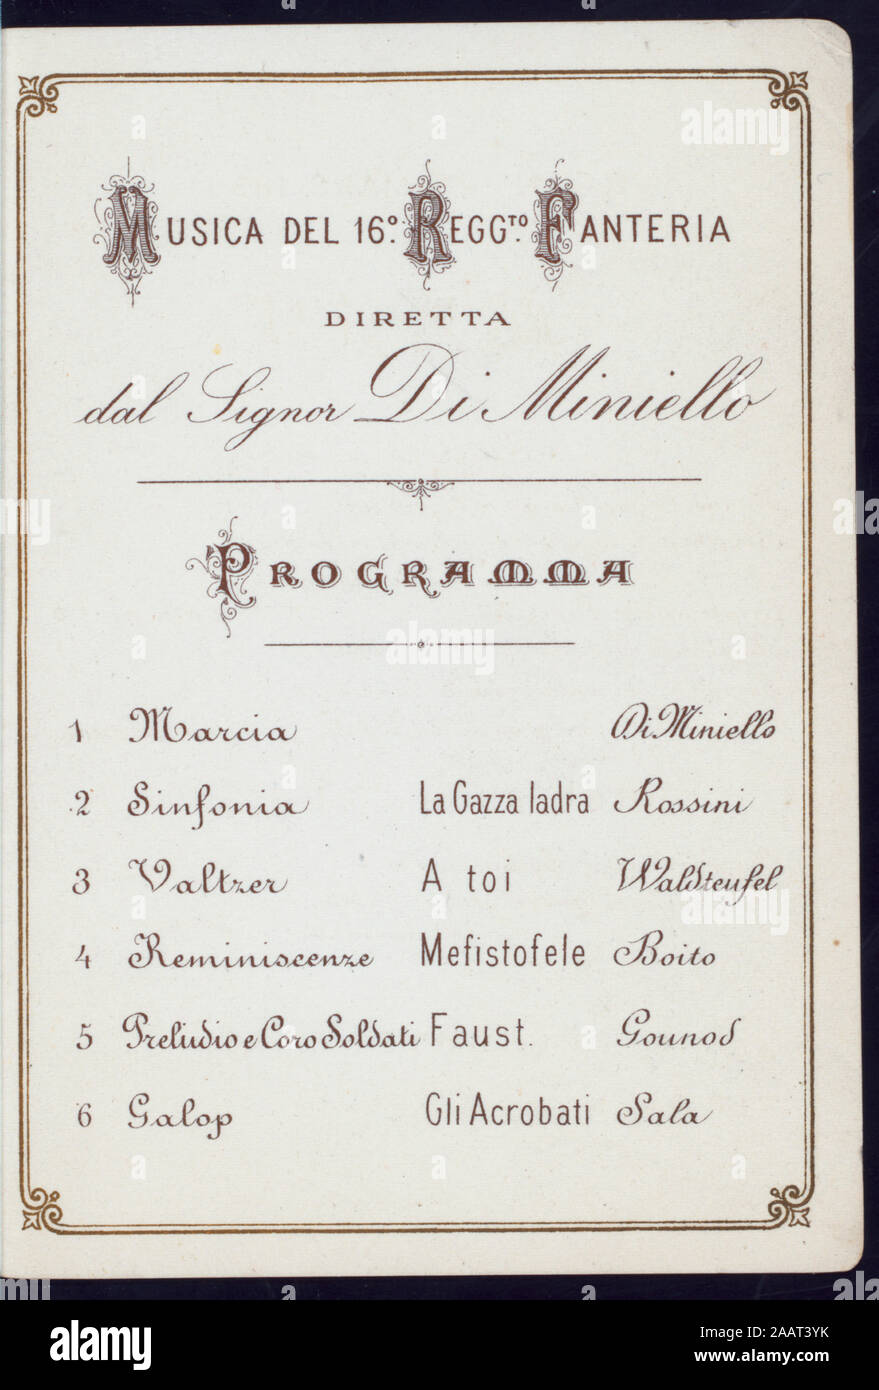 MUSICA DEL 16º. REGGTO. FANTERIA
DIRETTA
dal Signor Di Miniello
PROGRAMMA
1 Marcia Di Miniello
2 Sinfonia La Gazza ladra Rossini
3 Valtzer A toi Waldteufel
4 Reminiscenze Mefistofele Boito
5 Preludio e Coro Soldati Faust. Gounod
6 Galop Gli Acrobati Sala
alamy
Image ID: 2AAT3YK
www.alamy.com